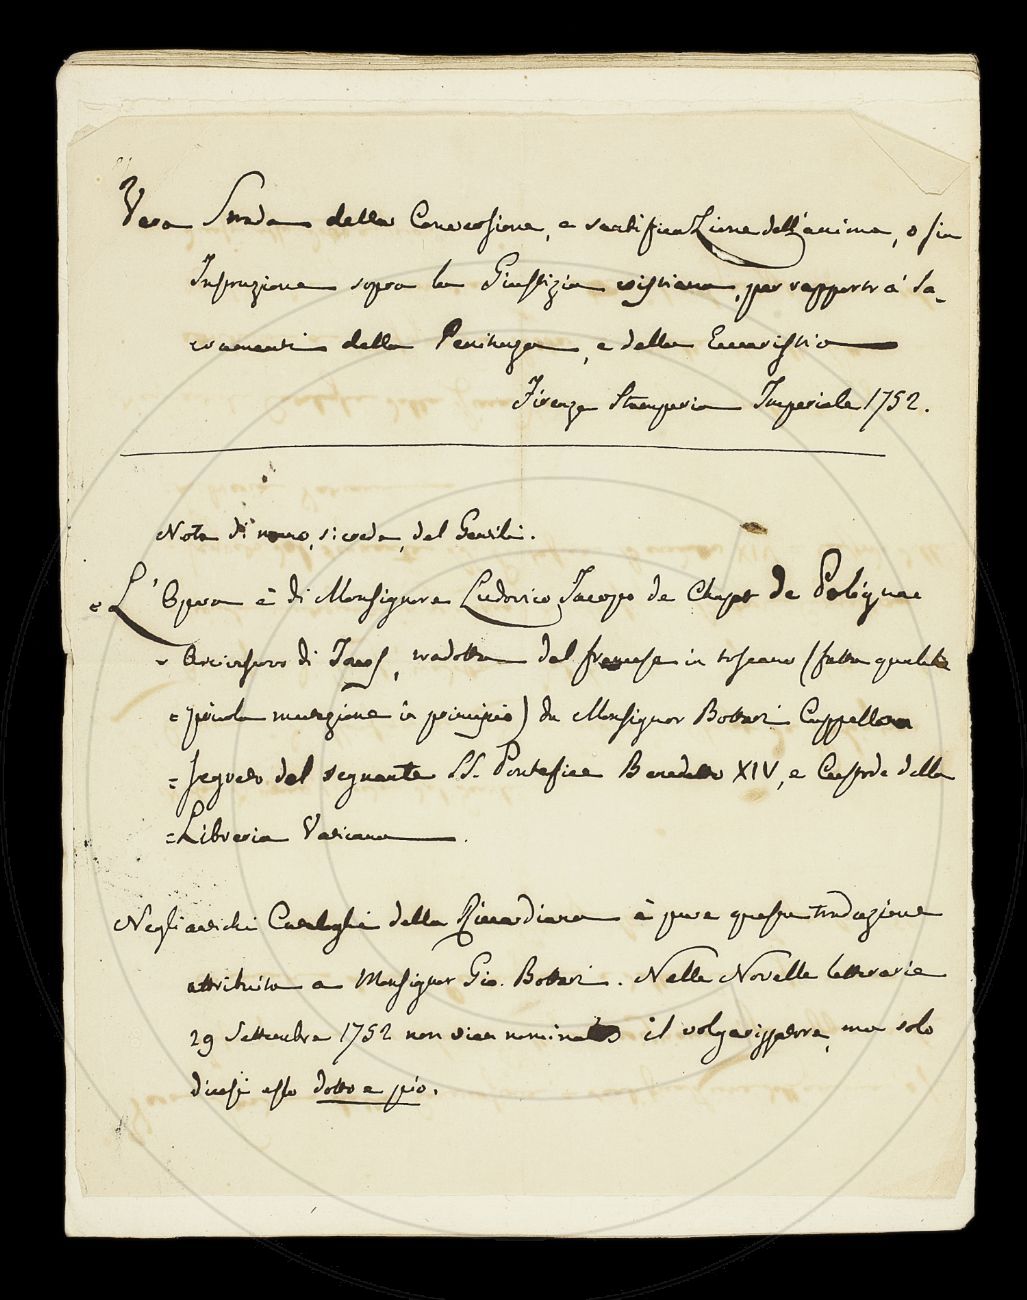 Vera Strada della Conversione, e santificazione dell'anima, o sia
Instruzione sopra la Giustizia cristiana, per rapporto a' Sa-
cramenti della Penitenza, e della Eucaristia
Firenze Stamperia Imperiale 1752.
Nota di mano, si creda, del Gentili.
= L'Opera è di Monsignore Ludovico Jacopo de Chapt de Polignac
= Arcivescovo di Tours, tradotta dal francese in toscano (fatta qualche
= piccola mutazione in principio) da Monsignor Bottari Cappellano
= segreto del regnante SS. Pontefice Benedetto XIV, e Custode della
= Libreria Vaticana.
Negli antichi Cataloghi della Riccardiana è pure questa traduzione
attribuita a Monsignor Gio. Bottari. Nelle Novelle letterarie
29 Settembre 1752 non vien nominato il volgarizzatore, ma solo
dicesi esso dotto e pio.